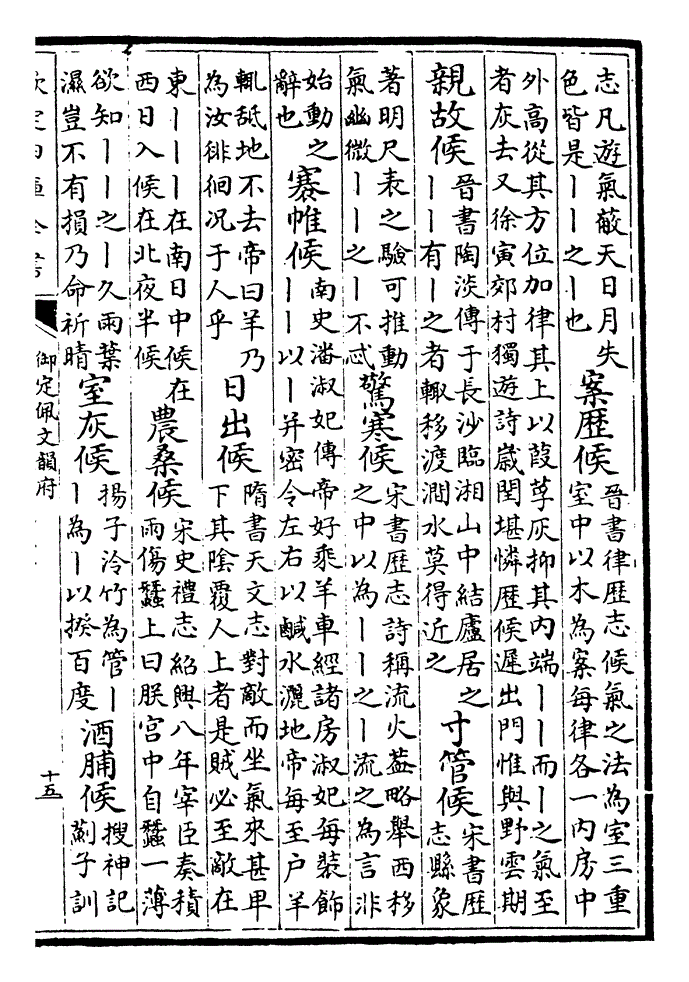 志凡遊氣蔽天日月失
色皆是丨丨之丨也
案歴候
晉書律歴志候氣之法為室三重
室中以木為案每律各一内房中
外高從其方位加律其上以葭莩灰抑其内端丨丨而丨之氣至
者灰去又徐寅郊村獨遊詩歲閏堪憐歴候遲出門惟與野雲期
親故候
晉書陶淡傳于長沙臨湘山中結廬居之
丨丨有丨之者輙移渡澗水莫得近之
寸管候
宋書歴
志縣象
著明尺表之驗可推動
氣幽微丨丨之丨不忒
驚寒候
宋書歴志詩稱流火葢略舉西移
之中以為丨丨之丨流之為言非
始動之
辭也
褰帷候
南史潘淑妃傳帝好乘羊車經諸房淑妃每裝飾
丨丨以丨并密令左右以鹹水灑地帝每至户羊
輒舐地不去帝曰羊乃
為汝徘徊况于人乎
日出候
隋書天文志對敵而坐氣來甚卑
下其陰覆人上者是賊必至敵在
東丨丨丨在南日中候在
西日入候在北夜半候
農桑候
宋史禮志紹興八年宰臣奏積
雨傷蠶上曰朕宫中自蠶一薄
欲知丨丨之丨久雨葉
濕豈不有損乃命祈晴
室灰候
揚子泠竹為管丨
丨為丨以揆百度
酒脯候
搜神記
薊子訓
欽定四庫全書
御定佩文韻府
十五